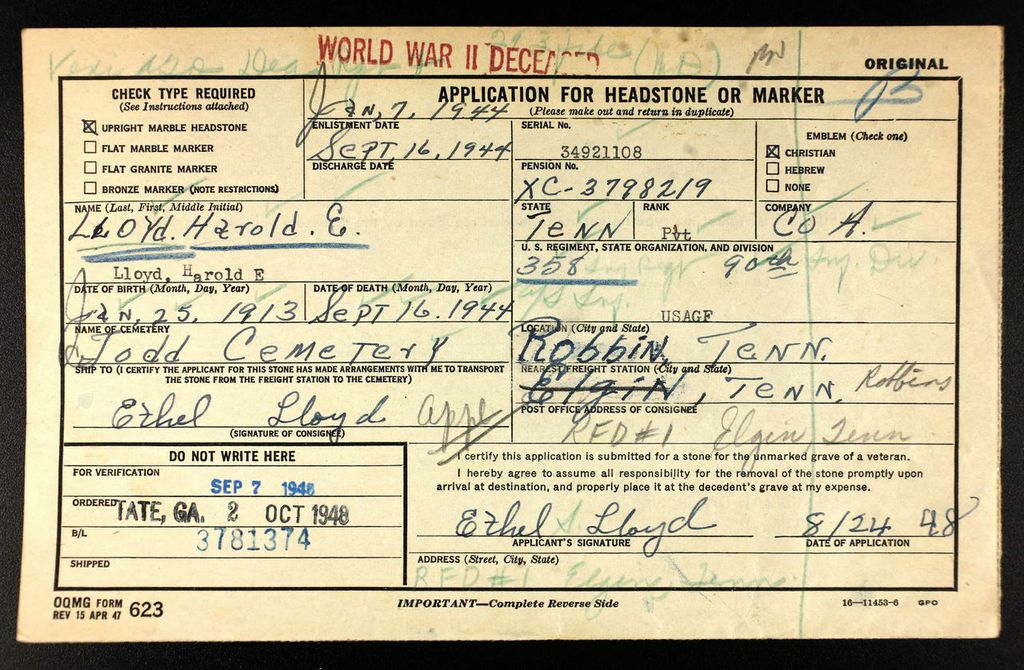 WORLD WAR II DECEASED
ORIGINAL
CHECK TYPE REQUIRED
(See Instructions attached)
☒ UPRIGHT MARBLE HEADSTONE
☐ FLAT MARBLE MARKER
☐ FLAT GRANITE MARKER
☐ BRONZE MARKER (NOTE RESTRICTIONS)
APPLICATION FOR HEADSTONE OR MARKER
(Please make out and return in duplicate)
Jan, 7, 1944
ENLISTMENT DATE
Sept, 16, 1944
DISCHARGE DATE
SERIAL No.
34921108
PENSION No.
XC-3798219
EMBLEM (Check one)
☒ CHRISTIAN
☐ HEBREW
☐ NONE
NAME (Last, First, Middle Initial)
Lloyd. Harold. E.
Lloyd, Harold E
STATE
Tenn
RANK
Pvt
COMPANY
Co A.
U. S. REGIMENT, STATE ORGANIZATION, AND DIVISION
358 Inf Regt 90th Inf. Div.
USAGF
DATE OF BIRTH (Month, Day, Year)
Jan, 25, 1913
DATE OF DEATH (Month, Day, Year)
Sept 16. 1944
NAME OF CEMETERY
Todd Cemetery
LOCATION (City and State)
Robbin, Tenn.
SHIP TO (I CERTIFY THE APPLICANT FOR THIS STONE HAS MADE ARRANGEMENTS WITH ME TO TRANSPORT
THE STONE FROM THE FREIGHT STATION TO THE CEMETERY)
Ethel Lloyd appl
(SIGNATURE OF CONSIGNEE)
NEAREST FREIGHT STATION (City and State)
Elgin, Tenn. Robbins
POST OFFICE ADDRESS OF CONSIGNEE
RFD #1 Elgin, Tenn
DO NOT WRITE HERE
FOR VERIFICATION
SEP 7 1948
ORDERED
TATE, GA. 2 OCT 1948
B/L
3781374
SHIPPED
I certify this application is submitted for a stone for the unmarked grave of a veteran.
I hereby agree to assume all responsibility for the removal of the stone promptly upon
arrival at destination, and properly place it at the decedent's grave at my expense.
Ethel S. Lloyd 8/24 48
APPLICANT'S SIGNATURE DATE OF APPLICATION
ADDRESS (Street, City, State)
RFD #1 Elgin, Tenn.
OQMG FORM
REV 15 APR 47 623
IMPORTANT—Complete Reverse Side
16—11453-6 GPO